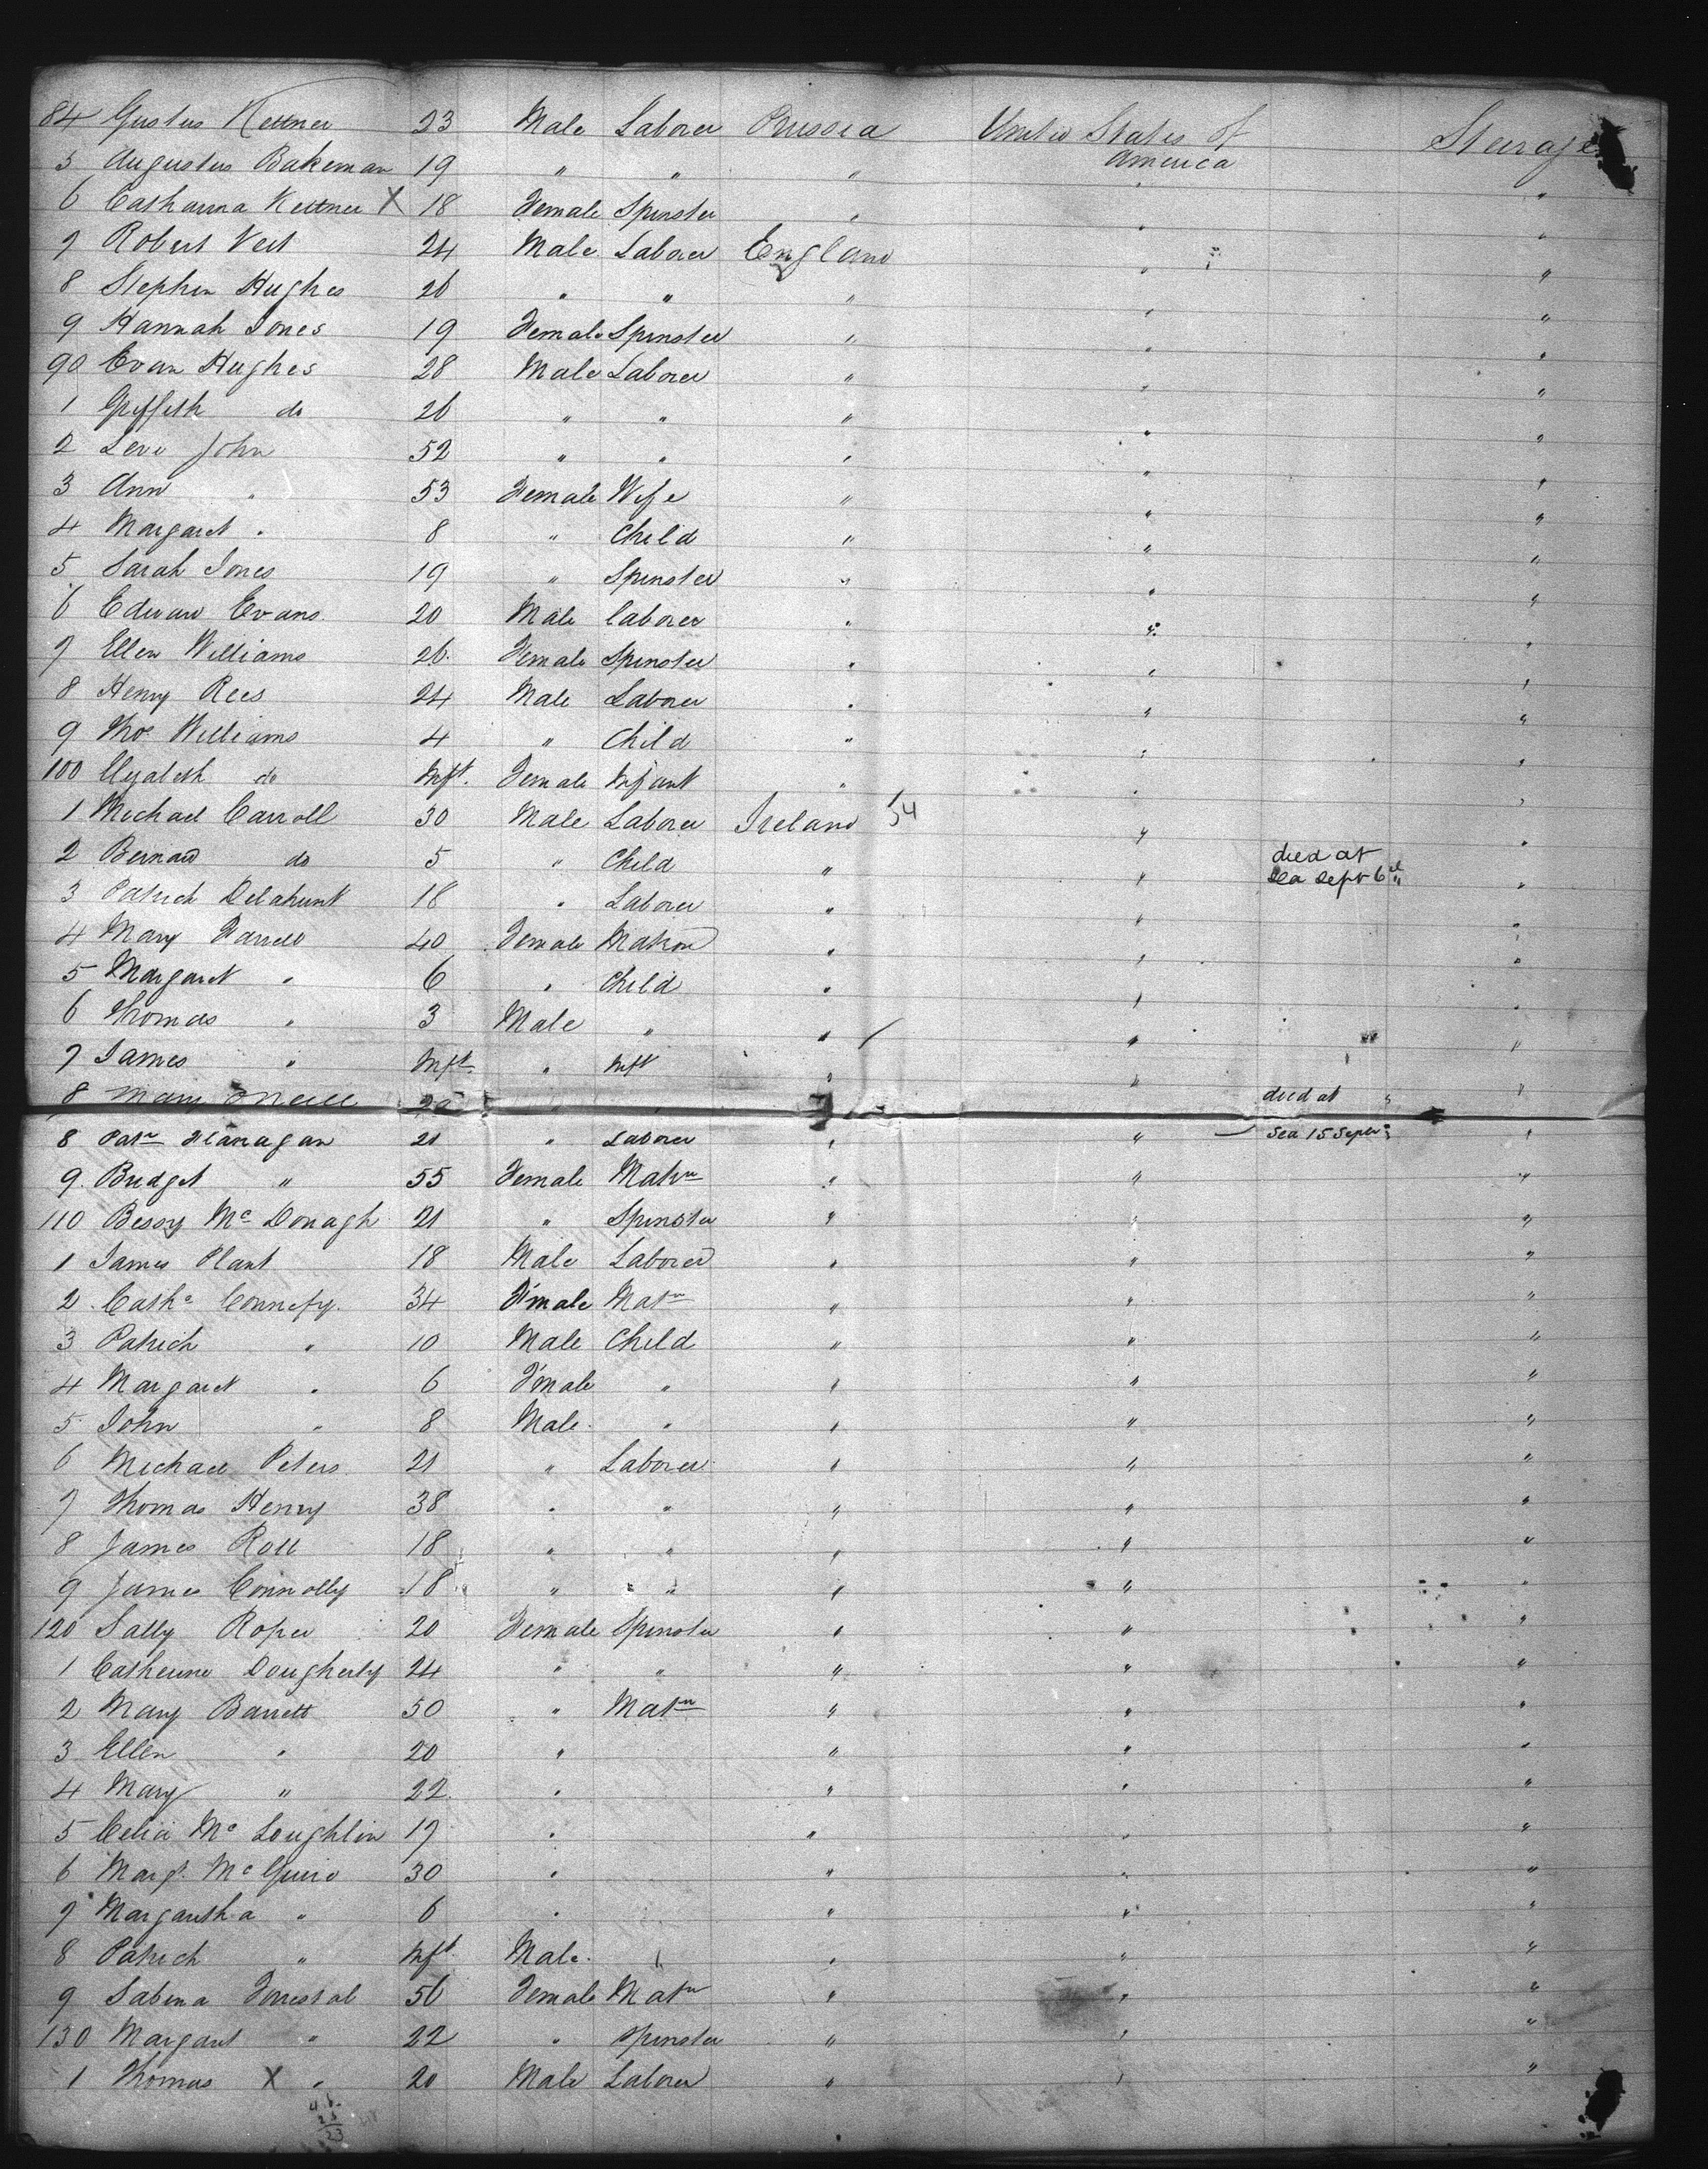 84 Gustus Kettner 23 Male Laborer Prussia United States of America Steerage
5 Augustus Bakeman 19 " " " " "
6 Catharina Kettner X 18 Female Spinster " " "
7 Robert Vest 24 Male Laborer England " "
8 Stephen Hughes 26 " " " " "
9 Hannah Jones 19 Female Spinster " " "
90 Evan Hughes 28 Male Laborer " " "
1 Griffith do 26 " " " " "
2 Levi John 52 " " " " "
3 Ann " 53 Female Wife " " "
4 Margaret " 8 " Child " " "
5 Sarah Jones 19 " Spinster " " "
6 Edward Evans 20 Male laborer " " "
7 Ellen Williams 26 Female Spinster " " "
8 Henry Rees 24 Male Laborer " " "
9 Thos Williams 4 " Child " " "
100 Elizabeth do Inft. Female Infant " " "
1 Michael Carroll 30 Male Laborer Ireland 54 " "
2 Bernard do 5 " Child " " died at sea Sept 6th "
3 Patrick Delahunt 18 " Laborer " " "
4 Mary Farrell 40 Female Matron " " "
5 Margaret " 6 " Child " " "
6 Thomas " 3 Male " " " "
7 James " Inft. " Inft " " "
8 Mary O'Neill 20 " " " died at "
8 Patk Flanagan 21 " Laborer " " — Sea 15 Septr "
9 Bridget " 55 Female Matn " " "
110 Bessy Mc Donagh 21 " Spinster " " "
1 James Plant 18 Male Laborer " " "
2 Cathe Connefy 34 F'male Matn " " "
3 Patrick " 10 Male Child " " "
4 Margaret " 6 F'male " " " "
5 John " 8 Male " " " "
6 Michael Peters 21 " Laborer " " "
7 Thomas Henry 38 " " " " "
8 James Roll 18 " " " " "
9 James Connolly 18 " " " " "
120 Sally Roper 20 Female Spinster " " "
1 Catherine Dougherty 24 " " " " "
2 Mary Barrett 50 " Matn " " "
3 Ellen " 20 " " " "
4 Mary " 22 " " " "
5 Celia Mc Loughlin 17 " " " "
6 Margt. Mc Guire 30 " " " "
7 Margaretha " 6 " " " "
8 Patrick " Inft Male " " " "
9 Sabina Forrestal 56 Female Matn " " "
130 Margaret " 22 " Spinster " " "
1 Thomas X " 20 Male Laborer " " "
23